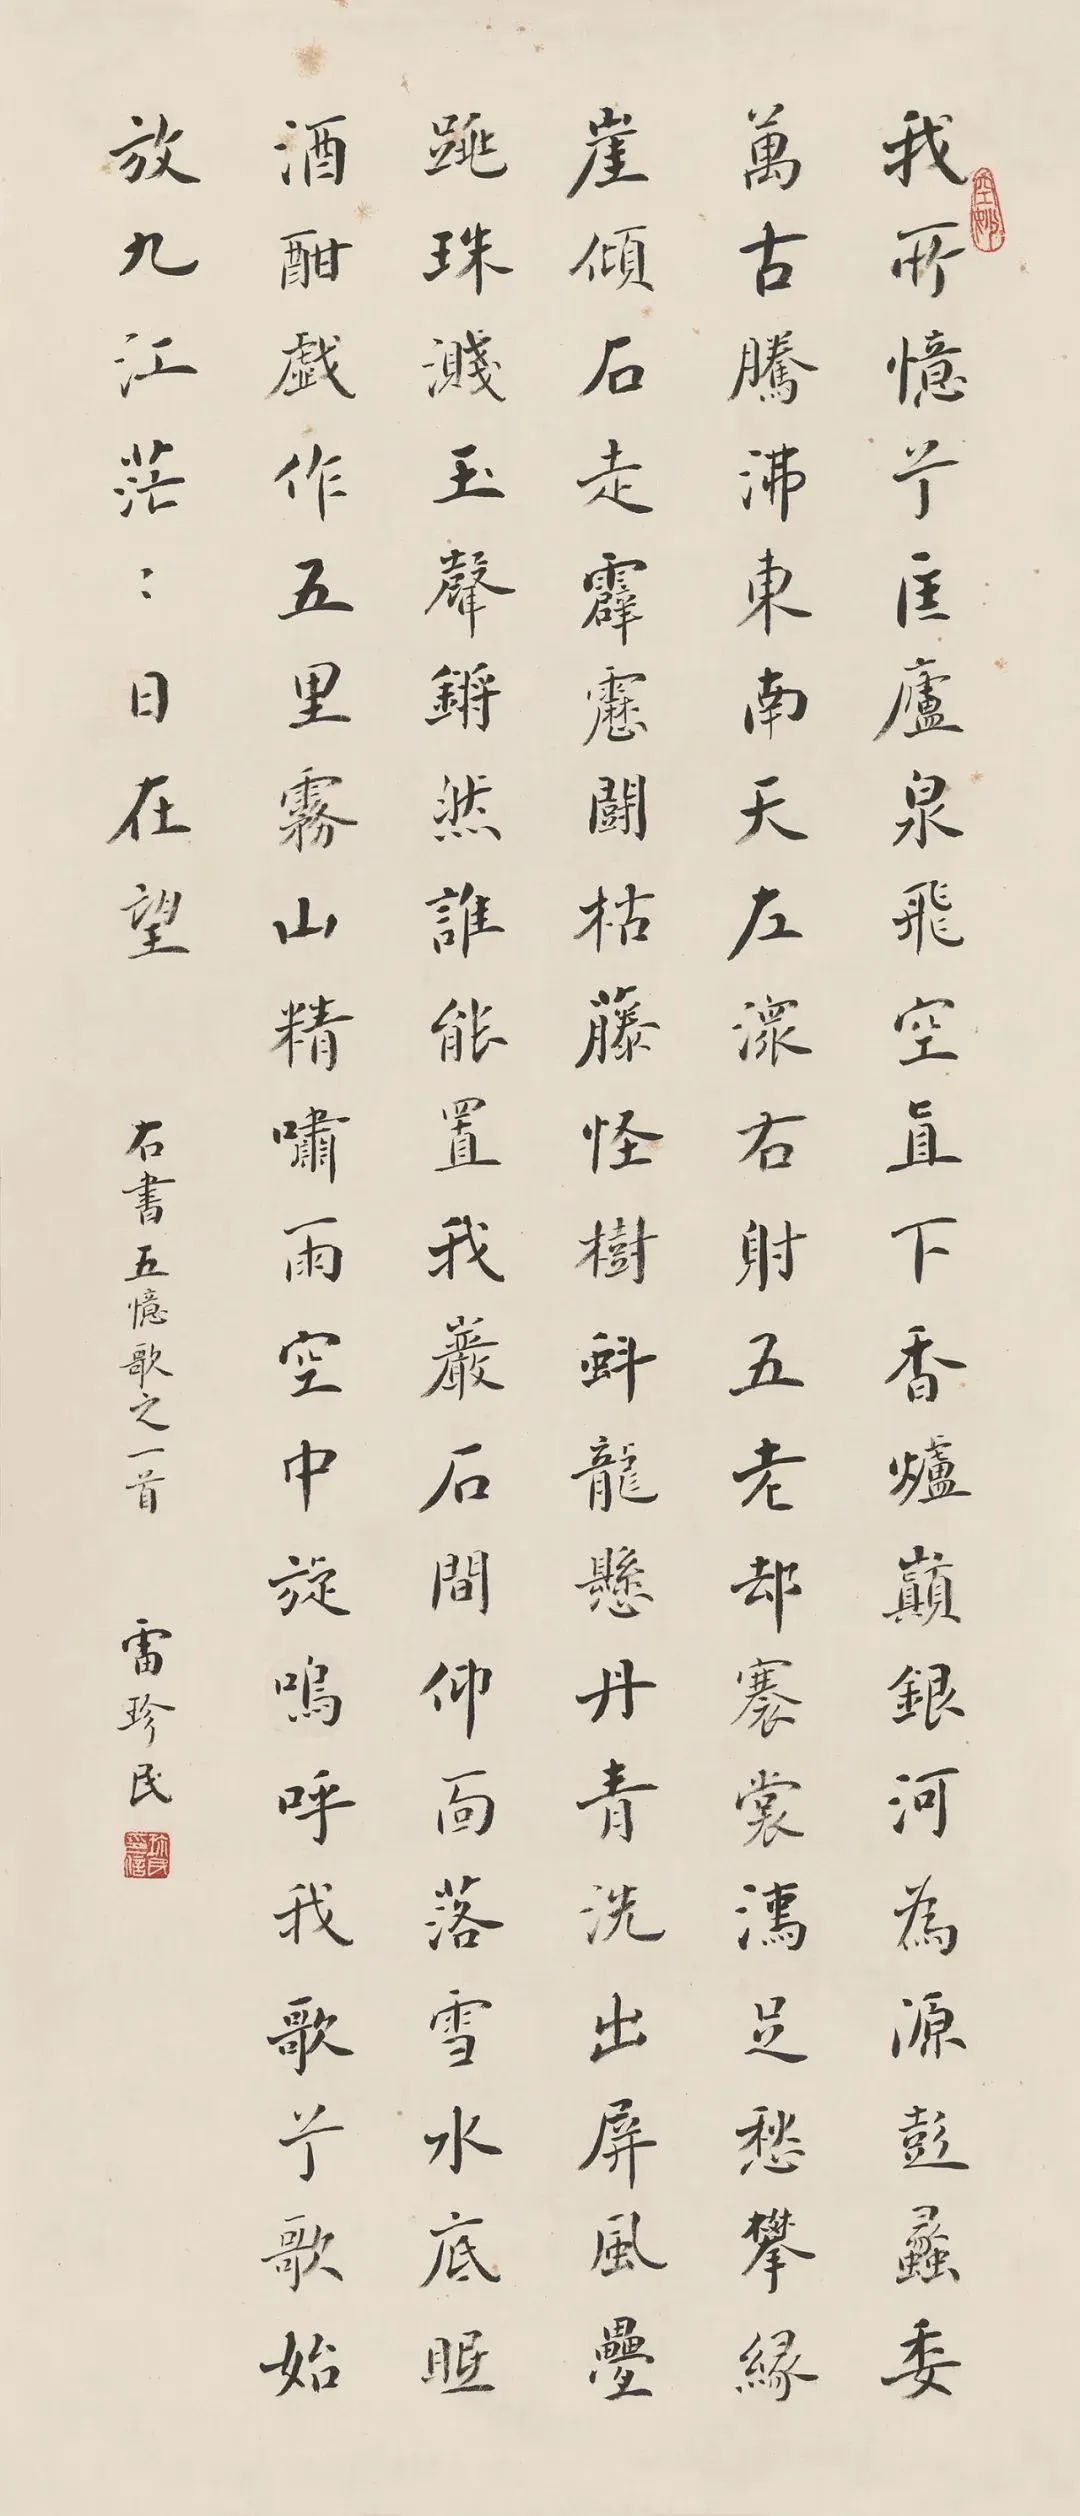 我所憶兮匡廬泉飛空直下香爐巔銀河為源彭蠡委
萬古騰沸東南天左潨右射五老却褰裳濡足愁攀緣
崖傾石走霹靂鬭枯藤怪樹蚪龍懸丹青洗出屏風疊
跳珠濺玉聲鏘然誰能置我巖石間仰面落雪水底眠
酒酣戲作五里霧山精嘯雨空中旋嗚呼我歌兮歌始
放九江茫〻日在望
右書五憶歌之一首
雷珍民
珍民印信